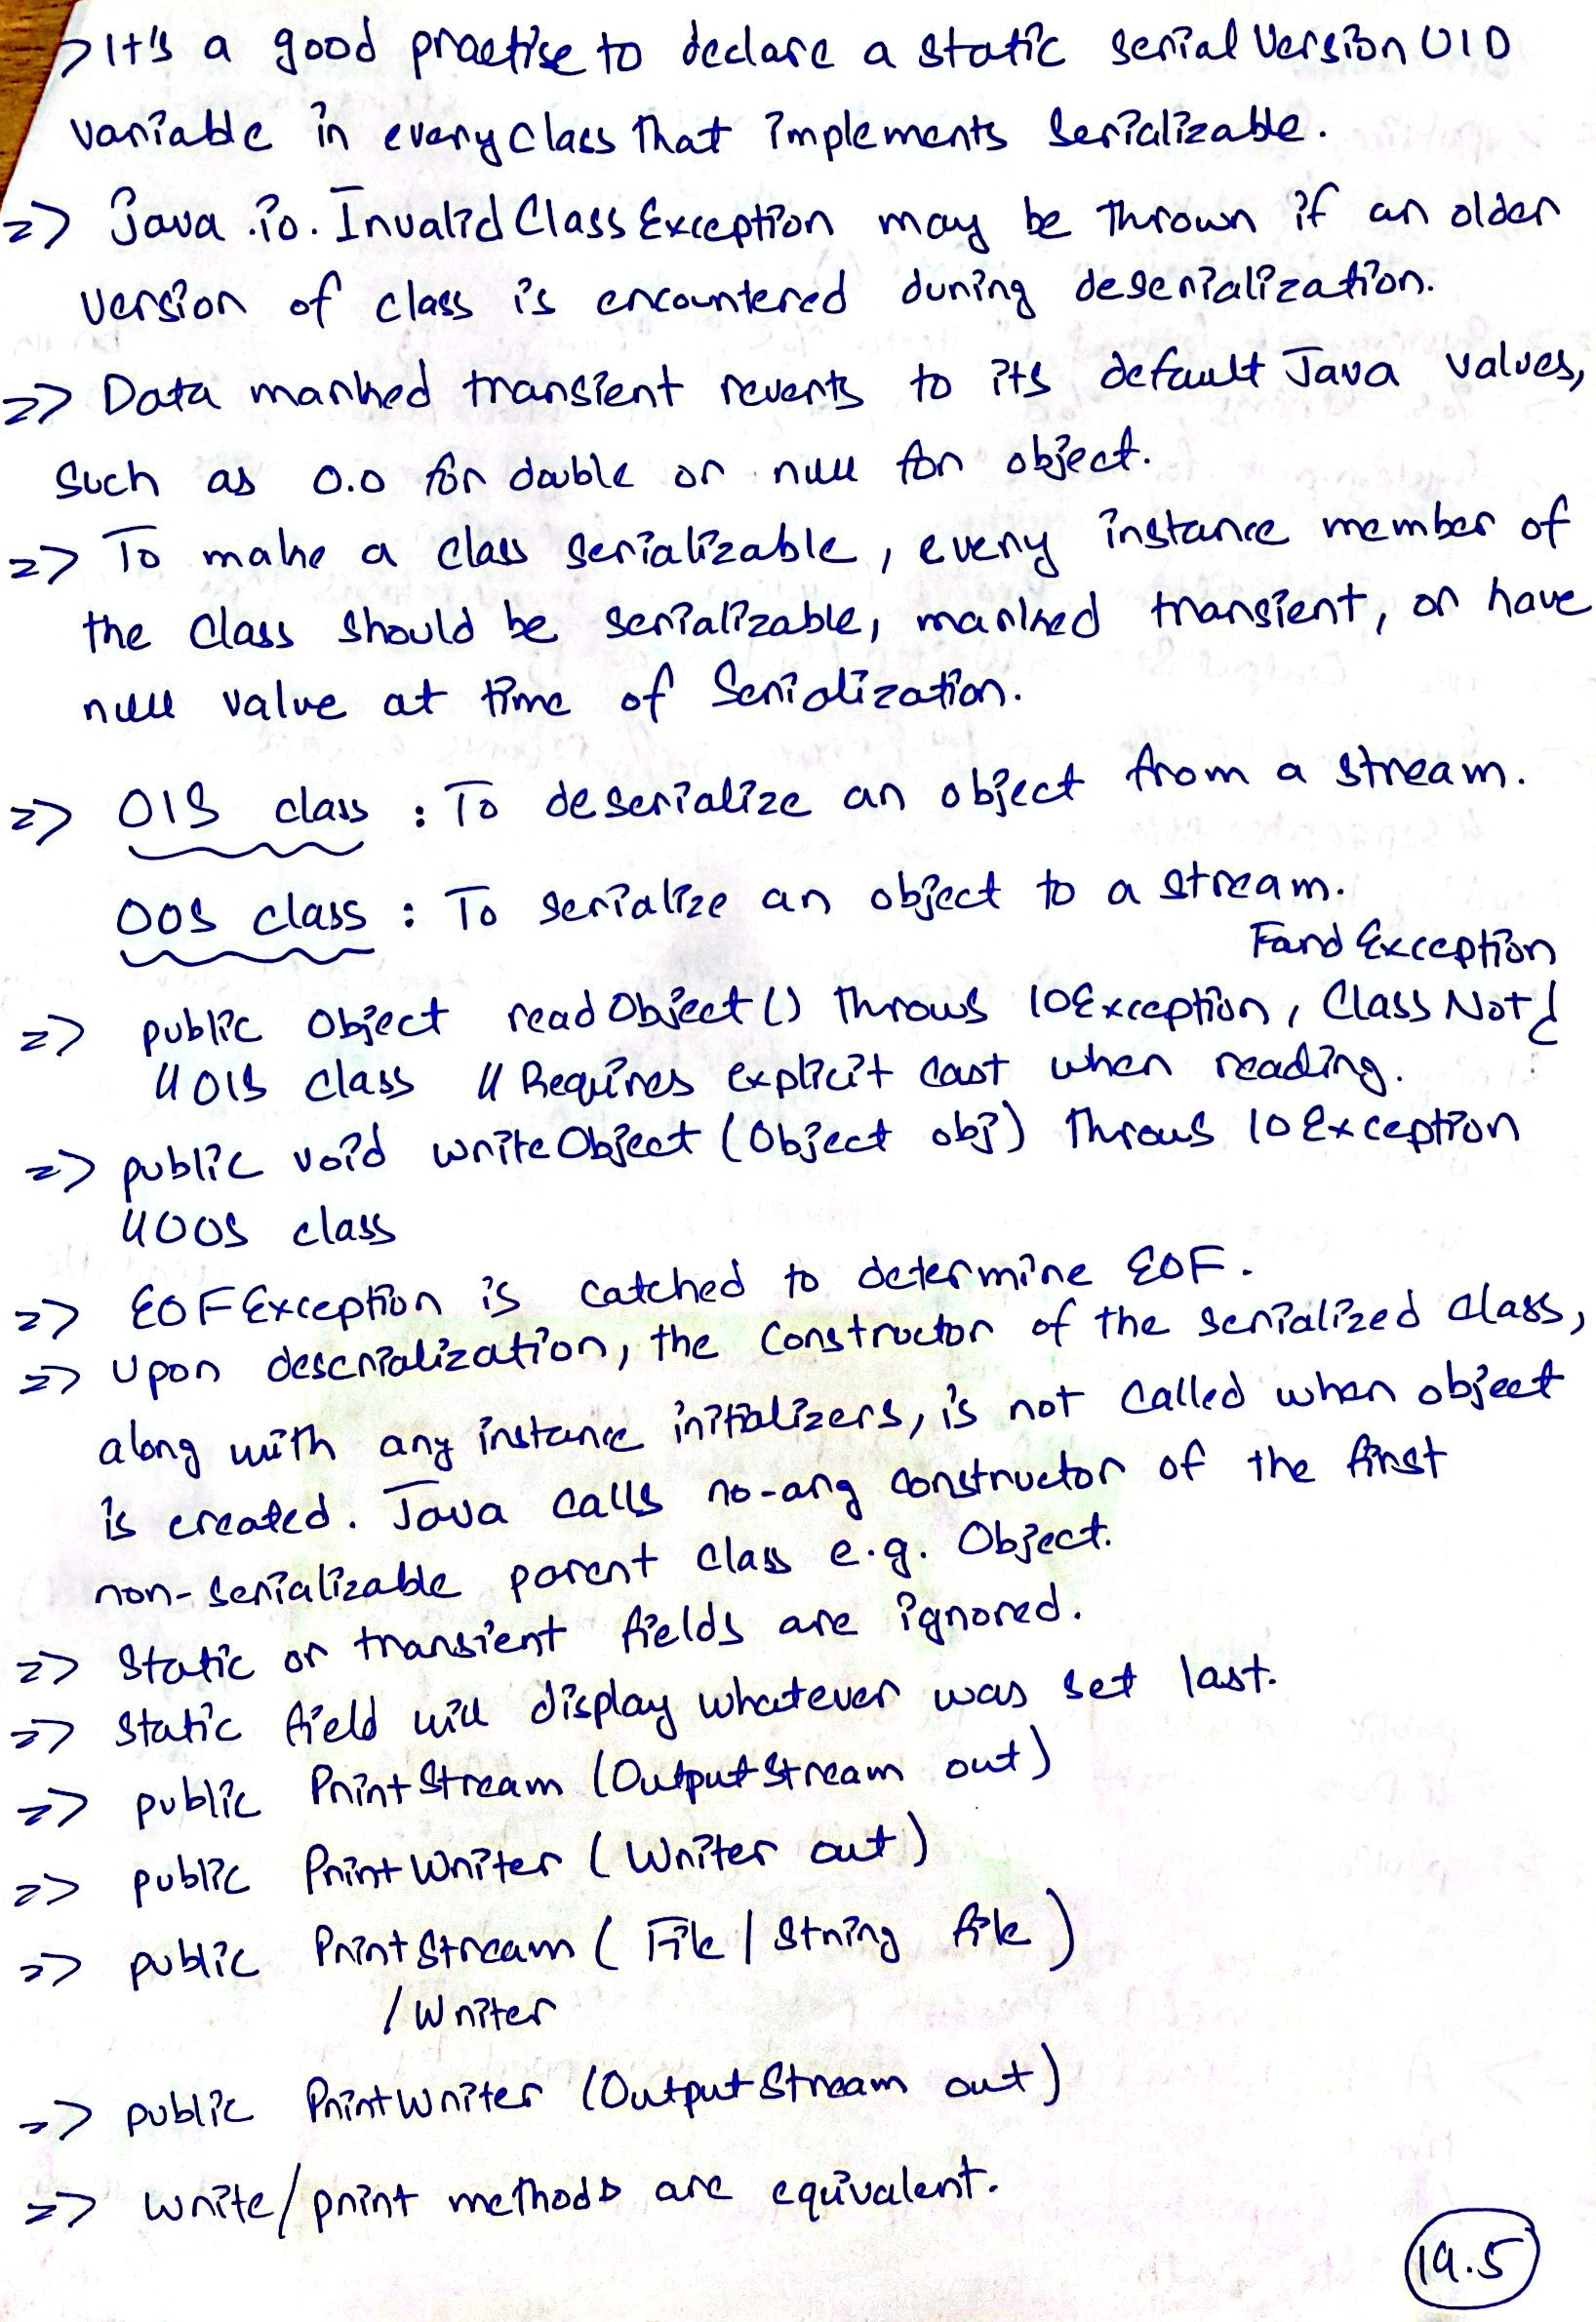 => It's a good practise to declare a static serial Version UID
variable in every class that implements Serializable.
=> java.io.InvalidClassException may be thrown if an older
version of class is encountered during deserialization.
=> Data marked transient reverts to its default Java values,
Such as 0.0 for double or null for object.
=> To make a class serializable, every instance member of
the class should be serializable, marked transient, or have
null value at time of Serialization.
=> OIS class : To deserialize an object from a stream.
OOS class : To serialize an object to a stream.
FandException
=> public Object readObject() throws IOException, ClassNot
// OIS class // Requires explicit cast when reading.
=> public void writeObject (Object obj) throws IOException
// OOS class
=> EOFException is catched to determine EOF.
=> Upon deserialization, the constructor of the serialized class,
along with any instance initializers, is not called when object
is created. Java calls no-arg constructor of the first
non-serializable parent class e.g. Object.
=> Static or transient fields are ignored.
=> Static field will display whatever was set last.
=> public PrintStream (OutputStream out)
=> public PrintWriter (Writer out)
=> public PrintStream ( File / String file )
/ Writer
=> public PrintWriter (OutputStream out)
=> write/print methods are equivalent.
19.5